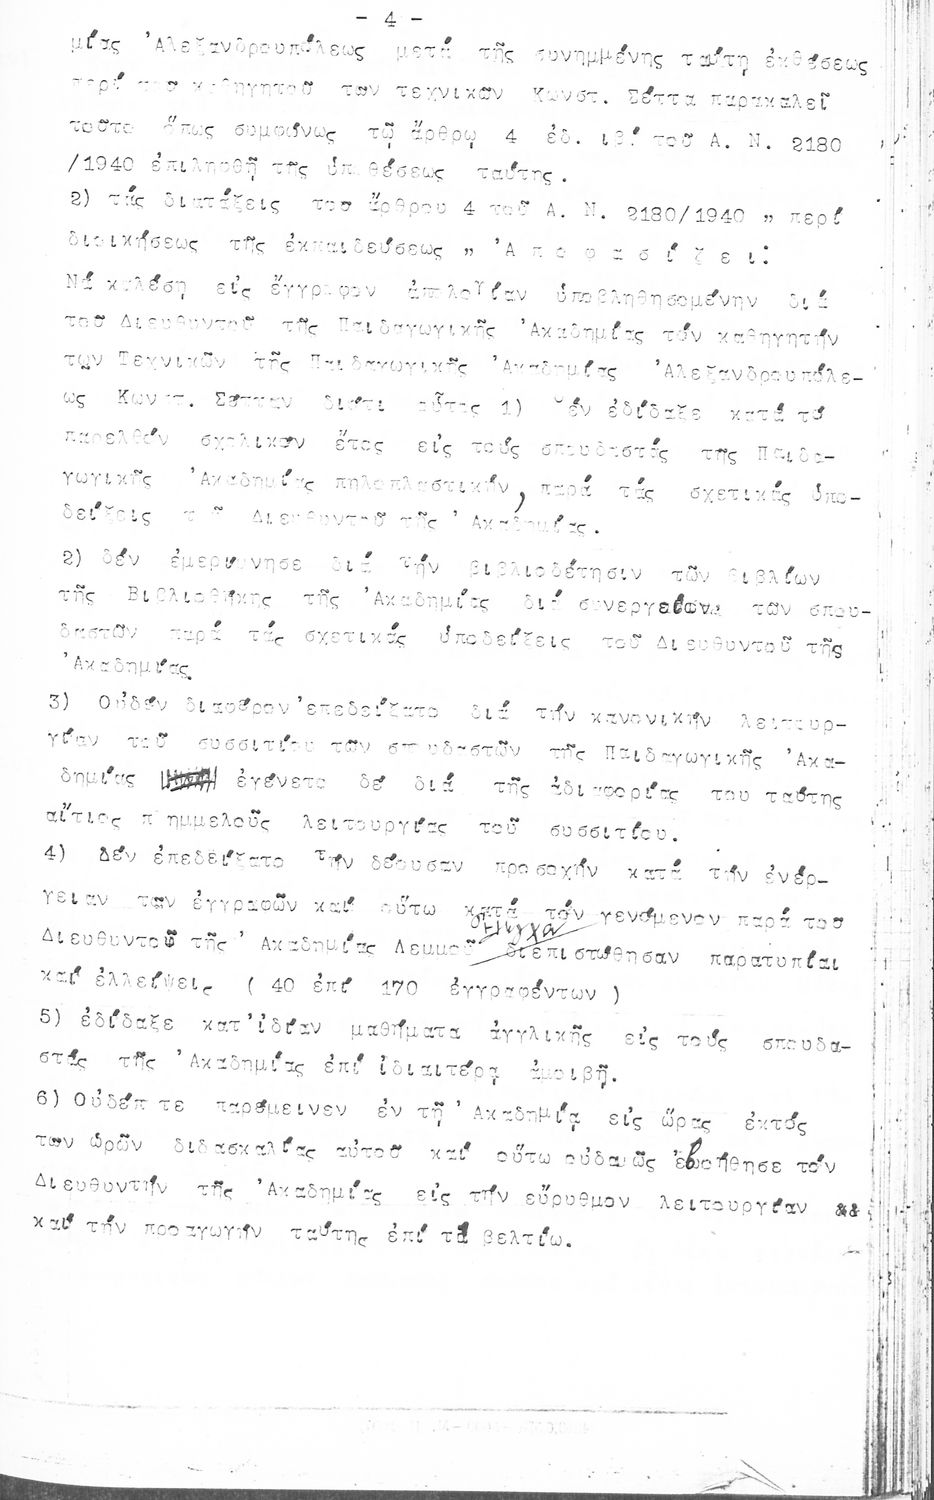 - 4 -
μίας Ἀλεξανδρουπόλεως μετά τῆς συνημμένης ταύτῃ ἐκθέσεως
περί του καθηγητοῦ των τεχνικῶν Κωνστ. Σέττα παρακαλεῖ
τοῦτο ὅπως συμφώνως τῷ ἄρθρῳ 4 ἐδ. ιβ΄ τοῦ Α. Ν. 2180
/1940 ἐπιληφθῇ τῆς ὑποθέσεως ταύτης.
2) τάς διατάξεις του ἄρθρου 4 τοῦ Α. Ν. 2180/1940 „ περί
διοικήσεως τῆς ἐκπαιδεύσεως „ Ἀ π ο φ α σ ί ζ ε ι :
Νά καλέσῃ εἰς ἔγγραφον ἀπολογίαν ὑποβληθησομένην διά
τοῦ Διευθυντοῦ τῆς Παιδαγωγικῆς Ἀκαδημίας τόν καθηγητήν
των Τεχνικῶν τῆς Παιδαγωγικῆς Ἀκαδημίας Ἀλεξανδρουπόλε-
ως Κωνστ. Σέτταν διότι οὗτος 1) δέν ἐδίδαξε κατά τό
παρελθόν σχολικόν ἔτος εἰς τούς σπουδαστάς τῆς Παιδα-
γωγικῆς Ἀκαδημίας πηλοπλαστικήν, παρά τάς σχετικάς ὑπο-
δείξεις τοῦ Διευθυντοῦ τῆς Ἀκαδημίας.
2) δέν ἐμερίμνησε διά τήν βιβλιοδέτησιν τῶν βιβλίων
τῆς Βιβλιοθήκης τῆς Ἀκαδημίας διά συνεργείων τῶν σπου-
δαστῶν παρά τάς σχετικάς ὑποδείξεις τοῦ Διευθυντοῦ τῆς
Ἀκαδημίας.
3) Οὐδέν διαφέρον ἐπεδείξατο διά τήν κανονικήν λειτουρ-
γίαν τοῦ συσσιτίου τῶν σπουδαστῶν τῆς Παιδαγωγικῆς Ἀκα-
δημίας ἐγένετο δέ διά τῆς ἀδιαφορίας του ταύτης
αἴτιος πλημμελοῦς λειτουργίας τοῦ συσσιτίου.
4) Δέν ἐπεδείξατο τήν δέουσαν προσοχήν κατά τήν ἐνέρ-
γειαν των ἐγγραφῶν καί οὕτω κατά τόν γενόμενον παρά του
Διευθυντοῦ τῆς Ἀκαδημίας Λεμμοῦ ἔλεγχον διεπιστώθησαν παρατυπίαι
καί ἐλλείψεις ( 40 ἐπί 170 ἐγγραφέντων )
5) ἐδίδαξε κατ' ἰδίαν μαθήματα ἀγγλικῆς εἰς τούς σπουδα-
στάς τῆς Ἀκαδημίας ἐπί ἰδιαιτέρᾳ ἀμοιβῇ.
6) Οὐδέποτε παρέμεινεν ἐν τῇ Ἀκαδημίᾳ εἰς ὥρας ἐκτός
των ὡρῶν διδασκαλίας αὐτοῦ καί οὕτω οὐδαμῶς ἐβοήθησε τόν
Διευθυντήν τῆς Ἀκαδημίας εἰς τήν εὔρυθμον λειτουργίαν &&
καί τήν προαγωγήν ταύτης ἐπί τά βελτίω.